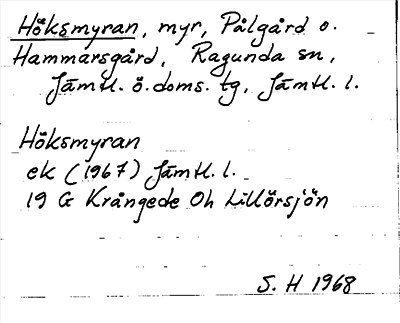 Höksmyran, myr, Pålgård o.
Hammarsgård, Ragunda sn,
Jämtl. ö. doms. tg, Jämtl. l.
Höksmyran
ek (1967) Jämtl. l.
19 G Krångede Oh Lillörsjön
S. H 1968